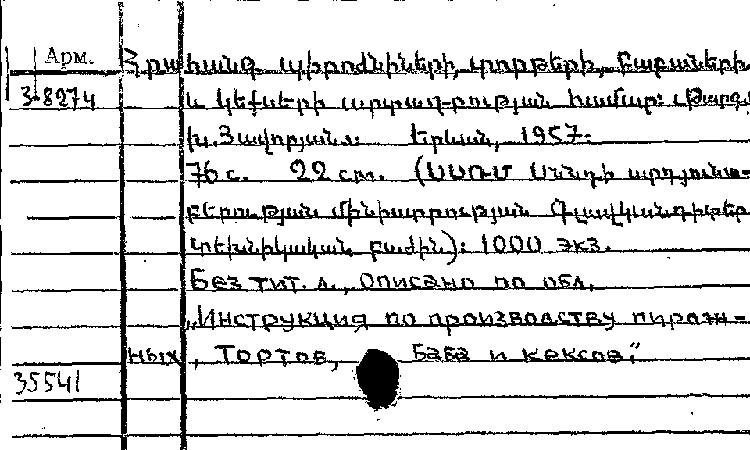 Арм. Հրահանգ պիրոժնիների, տորթերի, բաբաների
3-8274 և կեքսերի արտադրության համար: Թարգմ.
Խ. Յավորյան: Երևան, 1957:
76 с. 22 см. (ՍՍՌՄ Սննդի արդյունա-
բերության մինիստրության
տեխնիկական բաժին): 1000 экз.
Без тит. л., Описано по обл.
„Инструкция по производству пирож-
ных, Тортов, Баба и кексов":
35541